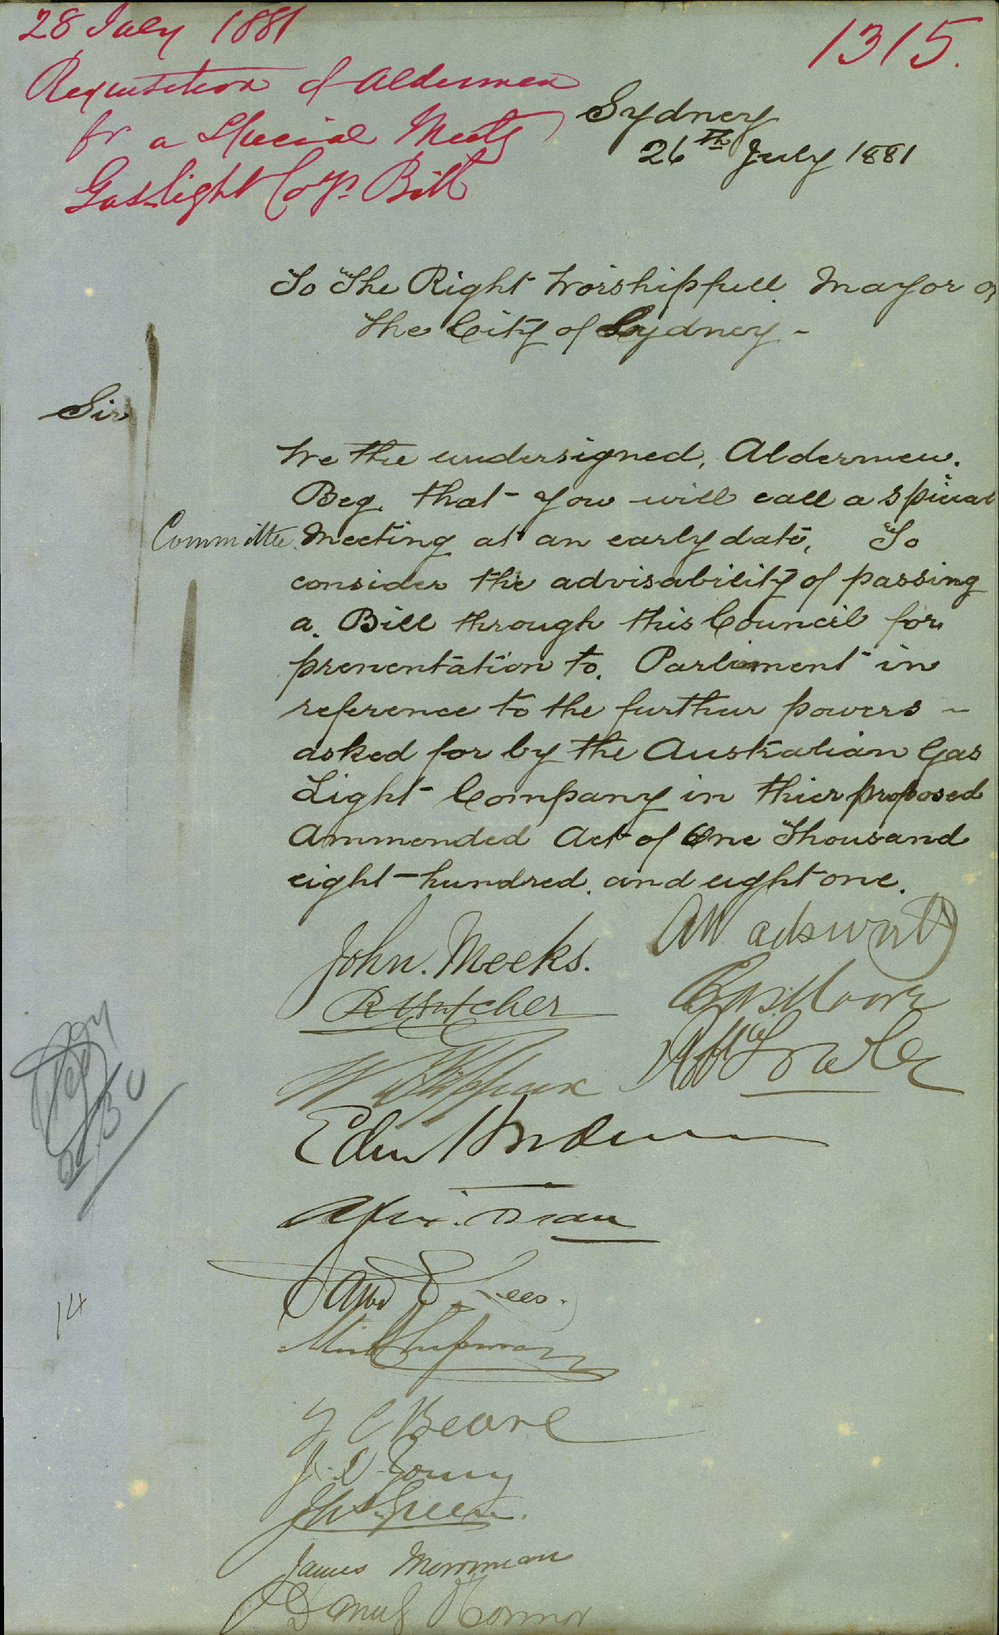 28 July 1881
1315.
Requisition of Aldermen
for a Special Meetg
Gaslight Coys Bill
Sydney
26th July 1881
To The Right Worshipfull Mayor of
the City of Sydney -
Sir
We the undersigned, Aldermen.
Beg. that you will call a special
Committee Meeting at an early date, To
consider the advisability of passing
a. Bill through this Council for
presentation to. Parliament in
reference to the further powers -
asked for by the Australian Gas
Light Company in thier proposed
Ammended Act of One Thousand
eight-hundred. and eight one.
John. Meeks.
R Butcher
Chas Moore
Alex. Dean
Lees.
Mich Chapman
T C Beare
J. D. Young
Jno Green.
James Merriman
Daniel O'Connor
14